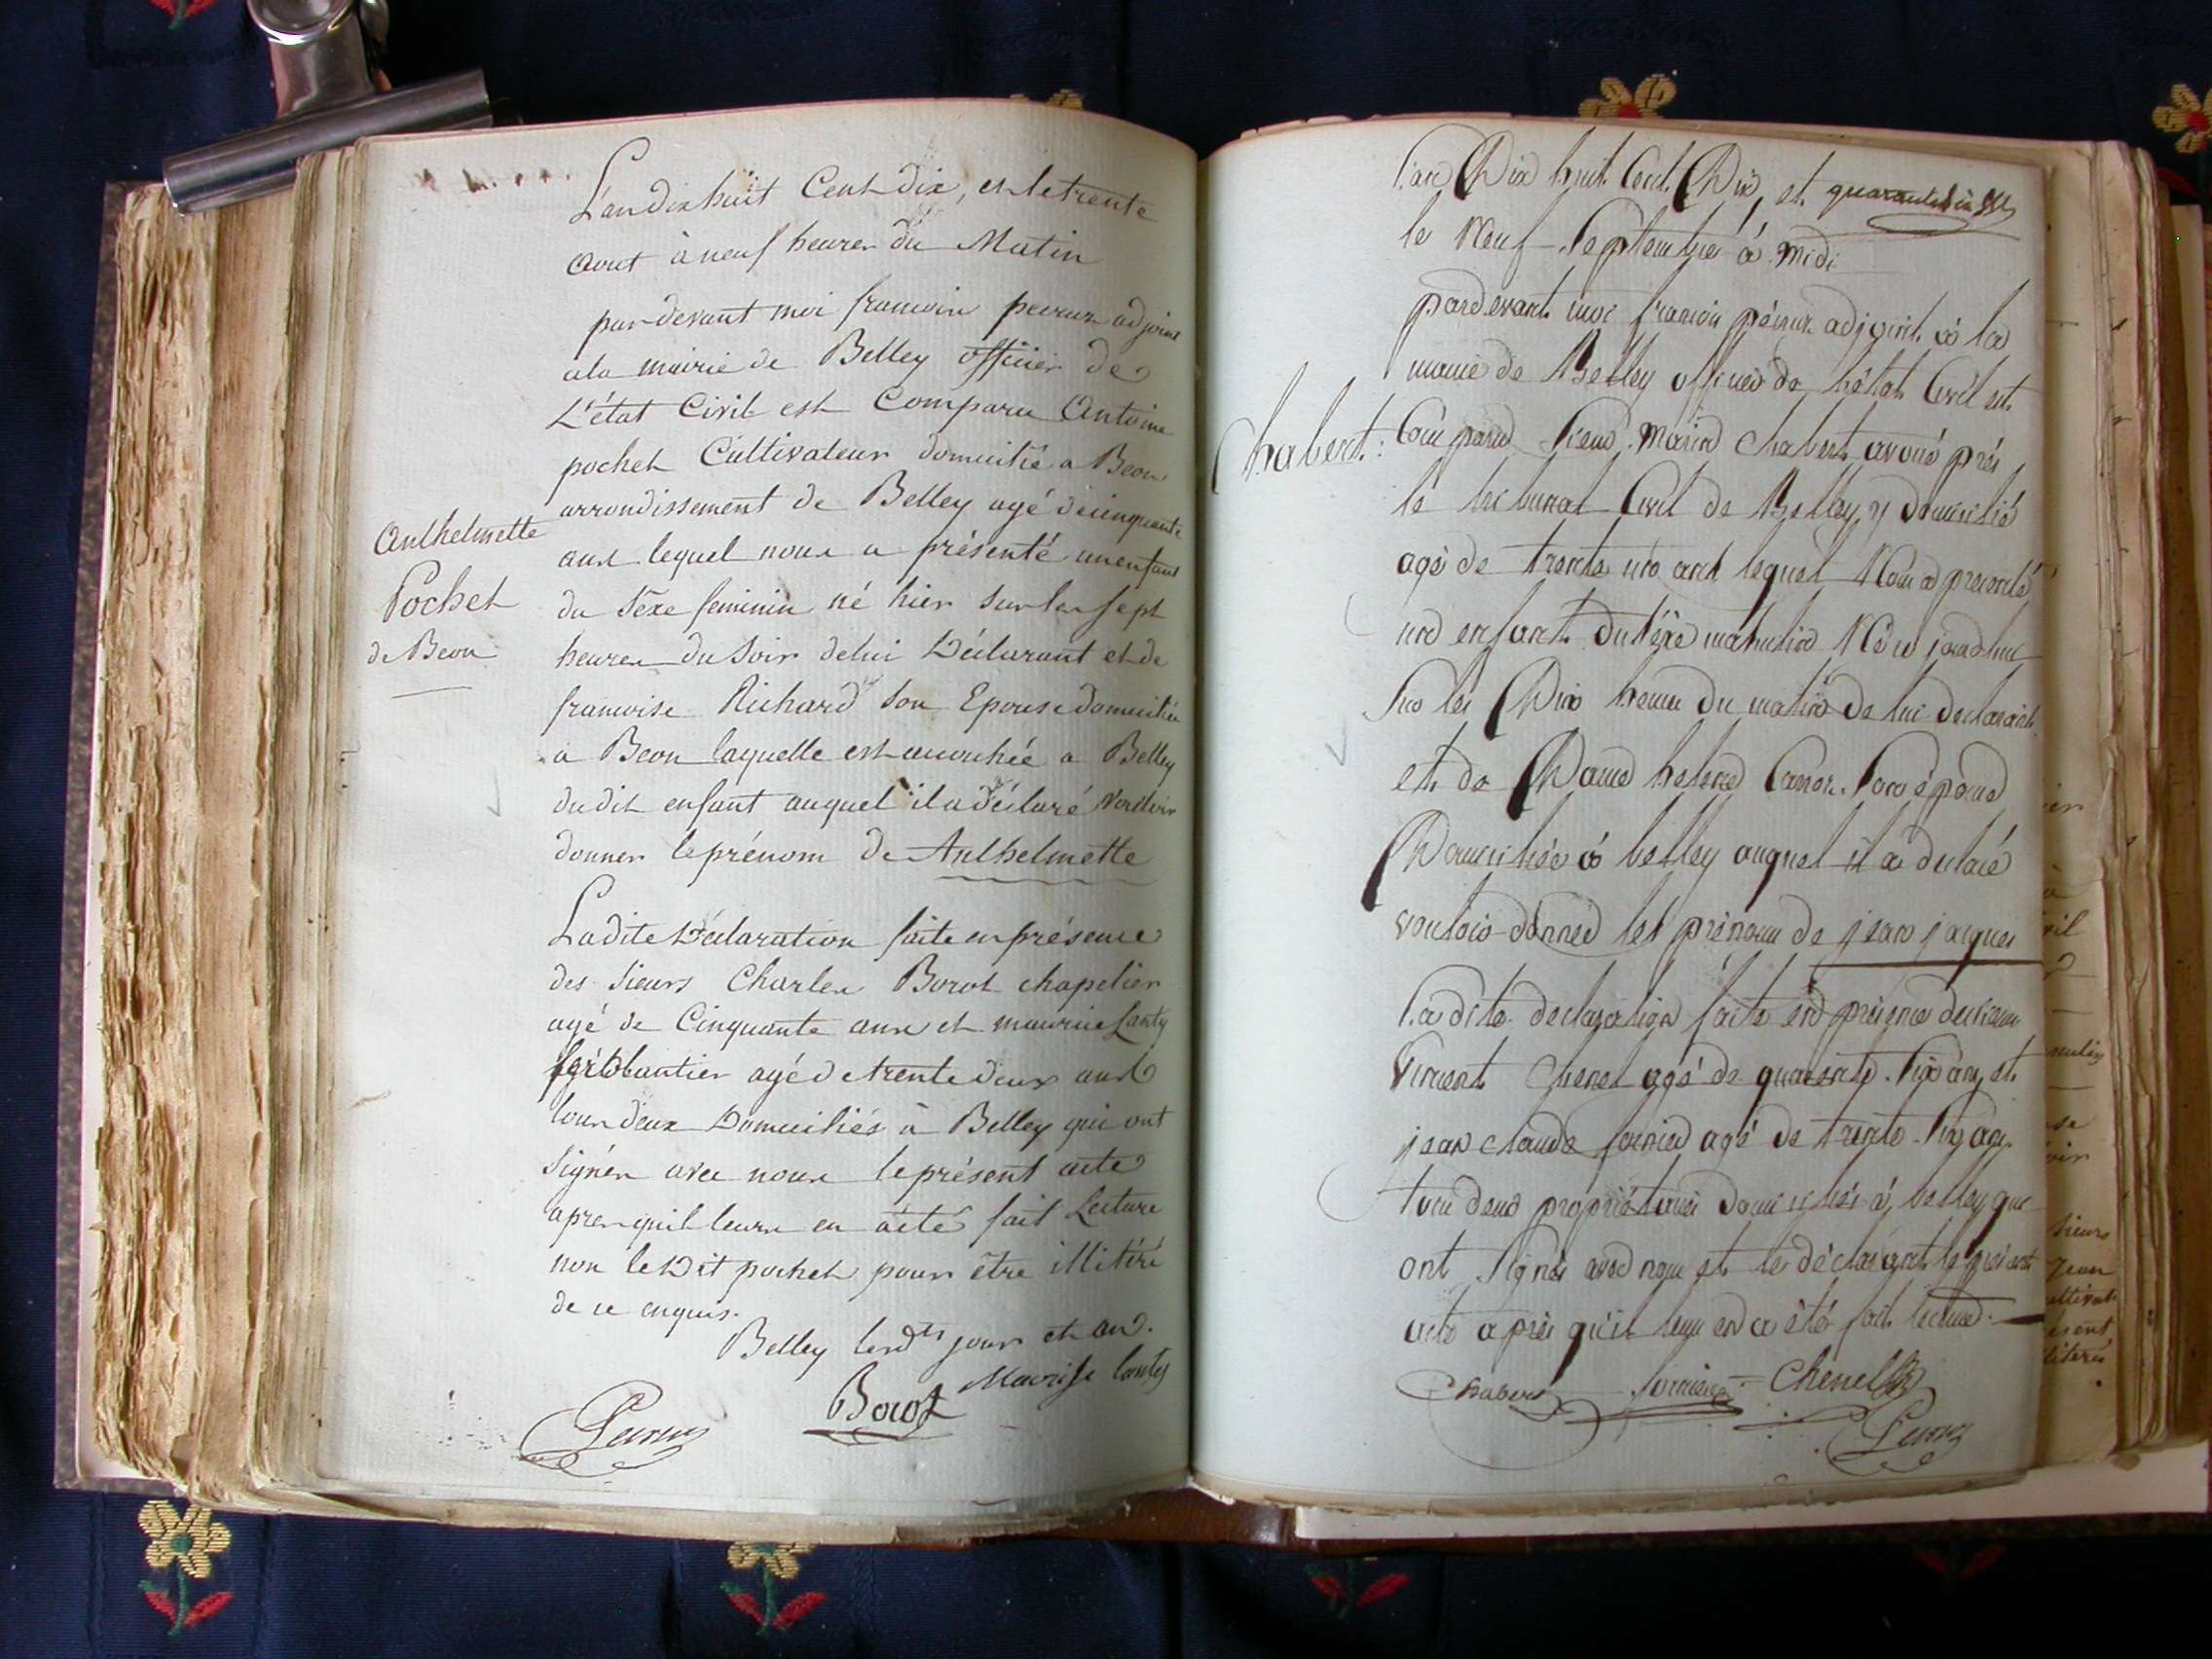 L'an dix huit Cent dix, et le trente
aout à neuf heures du Matin
par devant moi francois peyrux adjoint
a la mairie de Belley officier de
L'état Civil est Comparu Antoine
pochet Cultivateur domicilié a Beon
arrondissement de Belley agé de cinquante
ans lequel nous a présenté un enfant
du sexe feminin né hier sur les sept
heures du soir de lui Déclarant et de
francoise Richard son Epouse domiciliée
a Beon laquelle est accouchée a Belley
du dit enfant auquel il a déclaré Vouloir
donner le prénom de Anthelmette
La dite Déclaration faite en présence
des sieurs Charles Borot chapelier
agé de Cinquante ans et maurice Lanty
ferblantier agé de trente deux ans
tous deux Domiciliés à Belley qui ont
signés avec nous le présent acte
apres qu'il leurs en a été fait Lecture
non le Dit pochet pour être illitéré
de ce enquis.
Belley les dts jour et an.
Maurise lanty
Borot
Anthelmette
Pochet
de Beon
l'an Dix huit Cent Dix, et
le Neuf Septembre à midi
pardevant moi francois adjoint à la
mairie de Belley officier de l'état Civil est
Comparu sieur Marin Chabert avoué près
le tribunal Civil de Belley, y domicilié
agé de trente un ans lequel Nous a presenté
un enfant du sexe masculin Né ce jourdhui
sur les Dix heures du matin de lui declarant
et de Dame helene son épouse
Domiciliée à belley auquel il a declaré
vouloir donner les prénoms de jean jacques
La dite declaration faite en présence des sieurs
Vincent Chenel agé de quarante six ans, et
jean claude fornier agé de trente six ans
tous deux propriétaires domiciliés à belley qui
ont signés avec nous et le déclarant le présent
acte après qu'il leur en a été fait lecture.
Chabert fornier Chenel
Chabert :